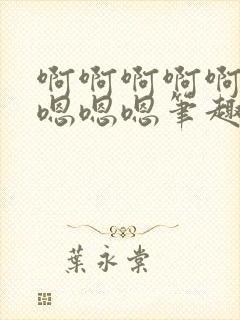 啊啊啊啊啊
嗯嗯嗯笔趣
葉永棠